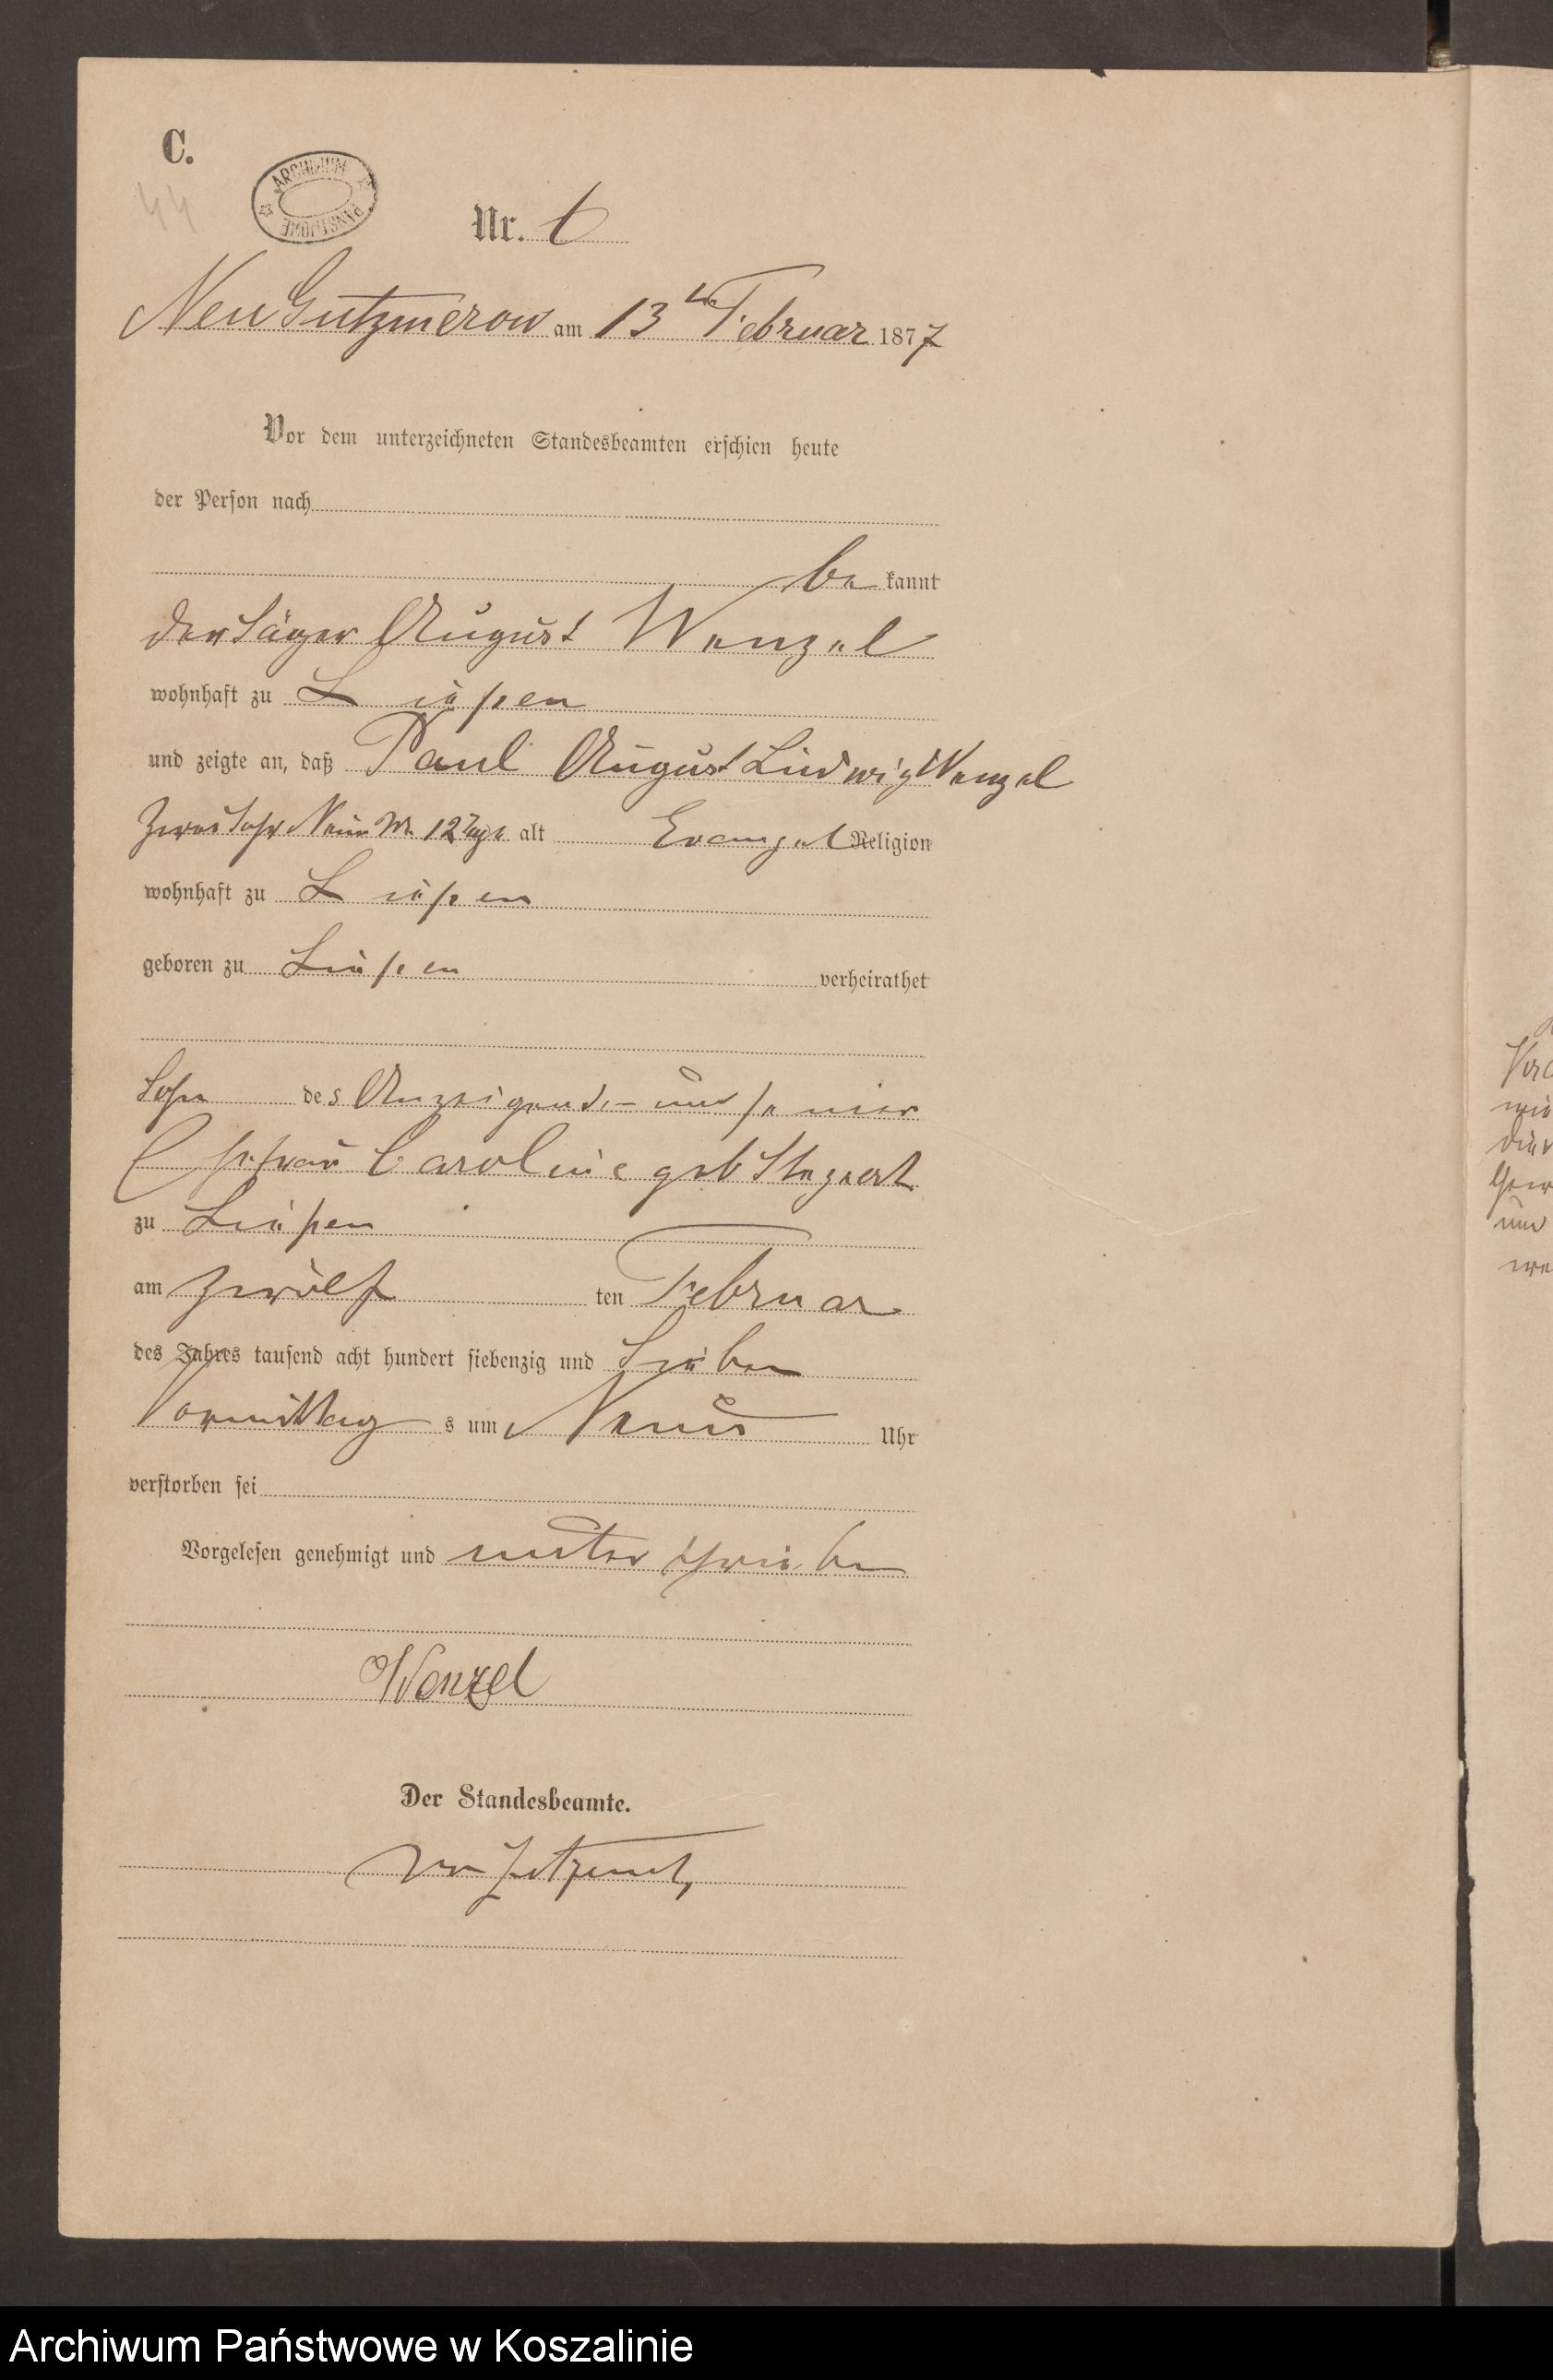 C.
44
ARCHIWUM PAŃSTWOWE
Nr. 6
Neu Gutzmerow am 13ten Februar 1877
Vor dem unterzeichneten Standesbeamten erschien heute
der Person nach
be kannt
der Jäger August Wenzel
wohnhaft zu
und zeigte an, daß Paul August Ludwig Wenzel
Zwei Jahr Neun M. 12 Tage alt Evangel Religion
wohnhaft zu
geboren zu verheirathet
Sohn des Anzeigenden und seiner
Ehefrau Caroline geb
zu
am zwölf ten Februar
des Jahres tausend acht hundert siebenzig und Sieben
Vormittag s um Neun Uhr
verstorben sei
Vorgelesen genehmigt und unterschrieben
Wenzel
Der Standesbeamte.
von
Archiwum Państwowe w Koszalinie